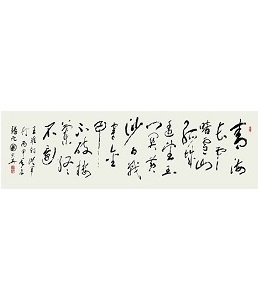 青海
長雲
暗雪山
孤城
遙望玉
門關黃
沙百戰
穿金
甲
不破樓
蘭終
不還
王昌齡從軍
行丙申